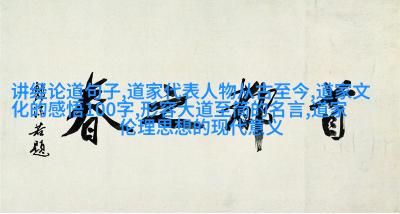 讲经论道句子,道家代表人物从古至今,道家文
化的感悟100字,形容大道至简的名言,道家
伦理思想的现代意义
首都之春
若题